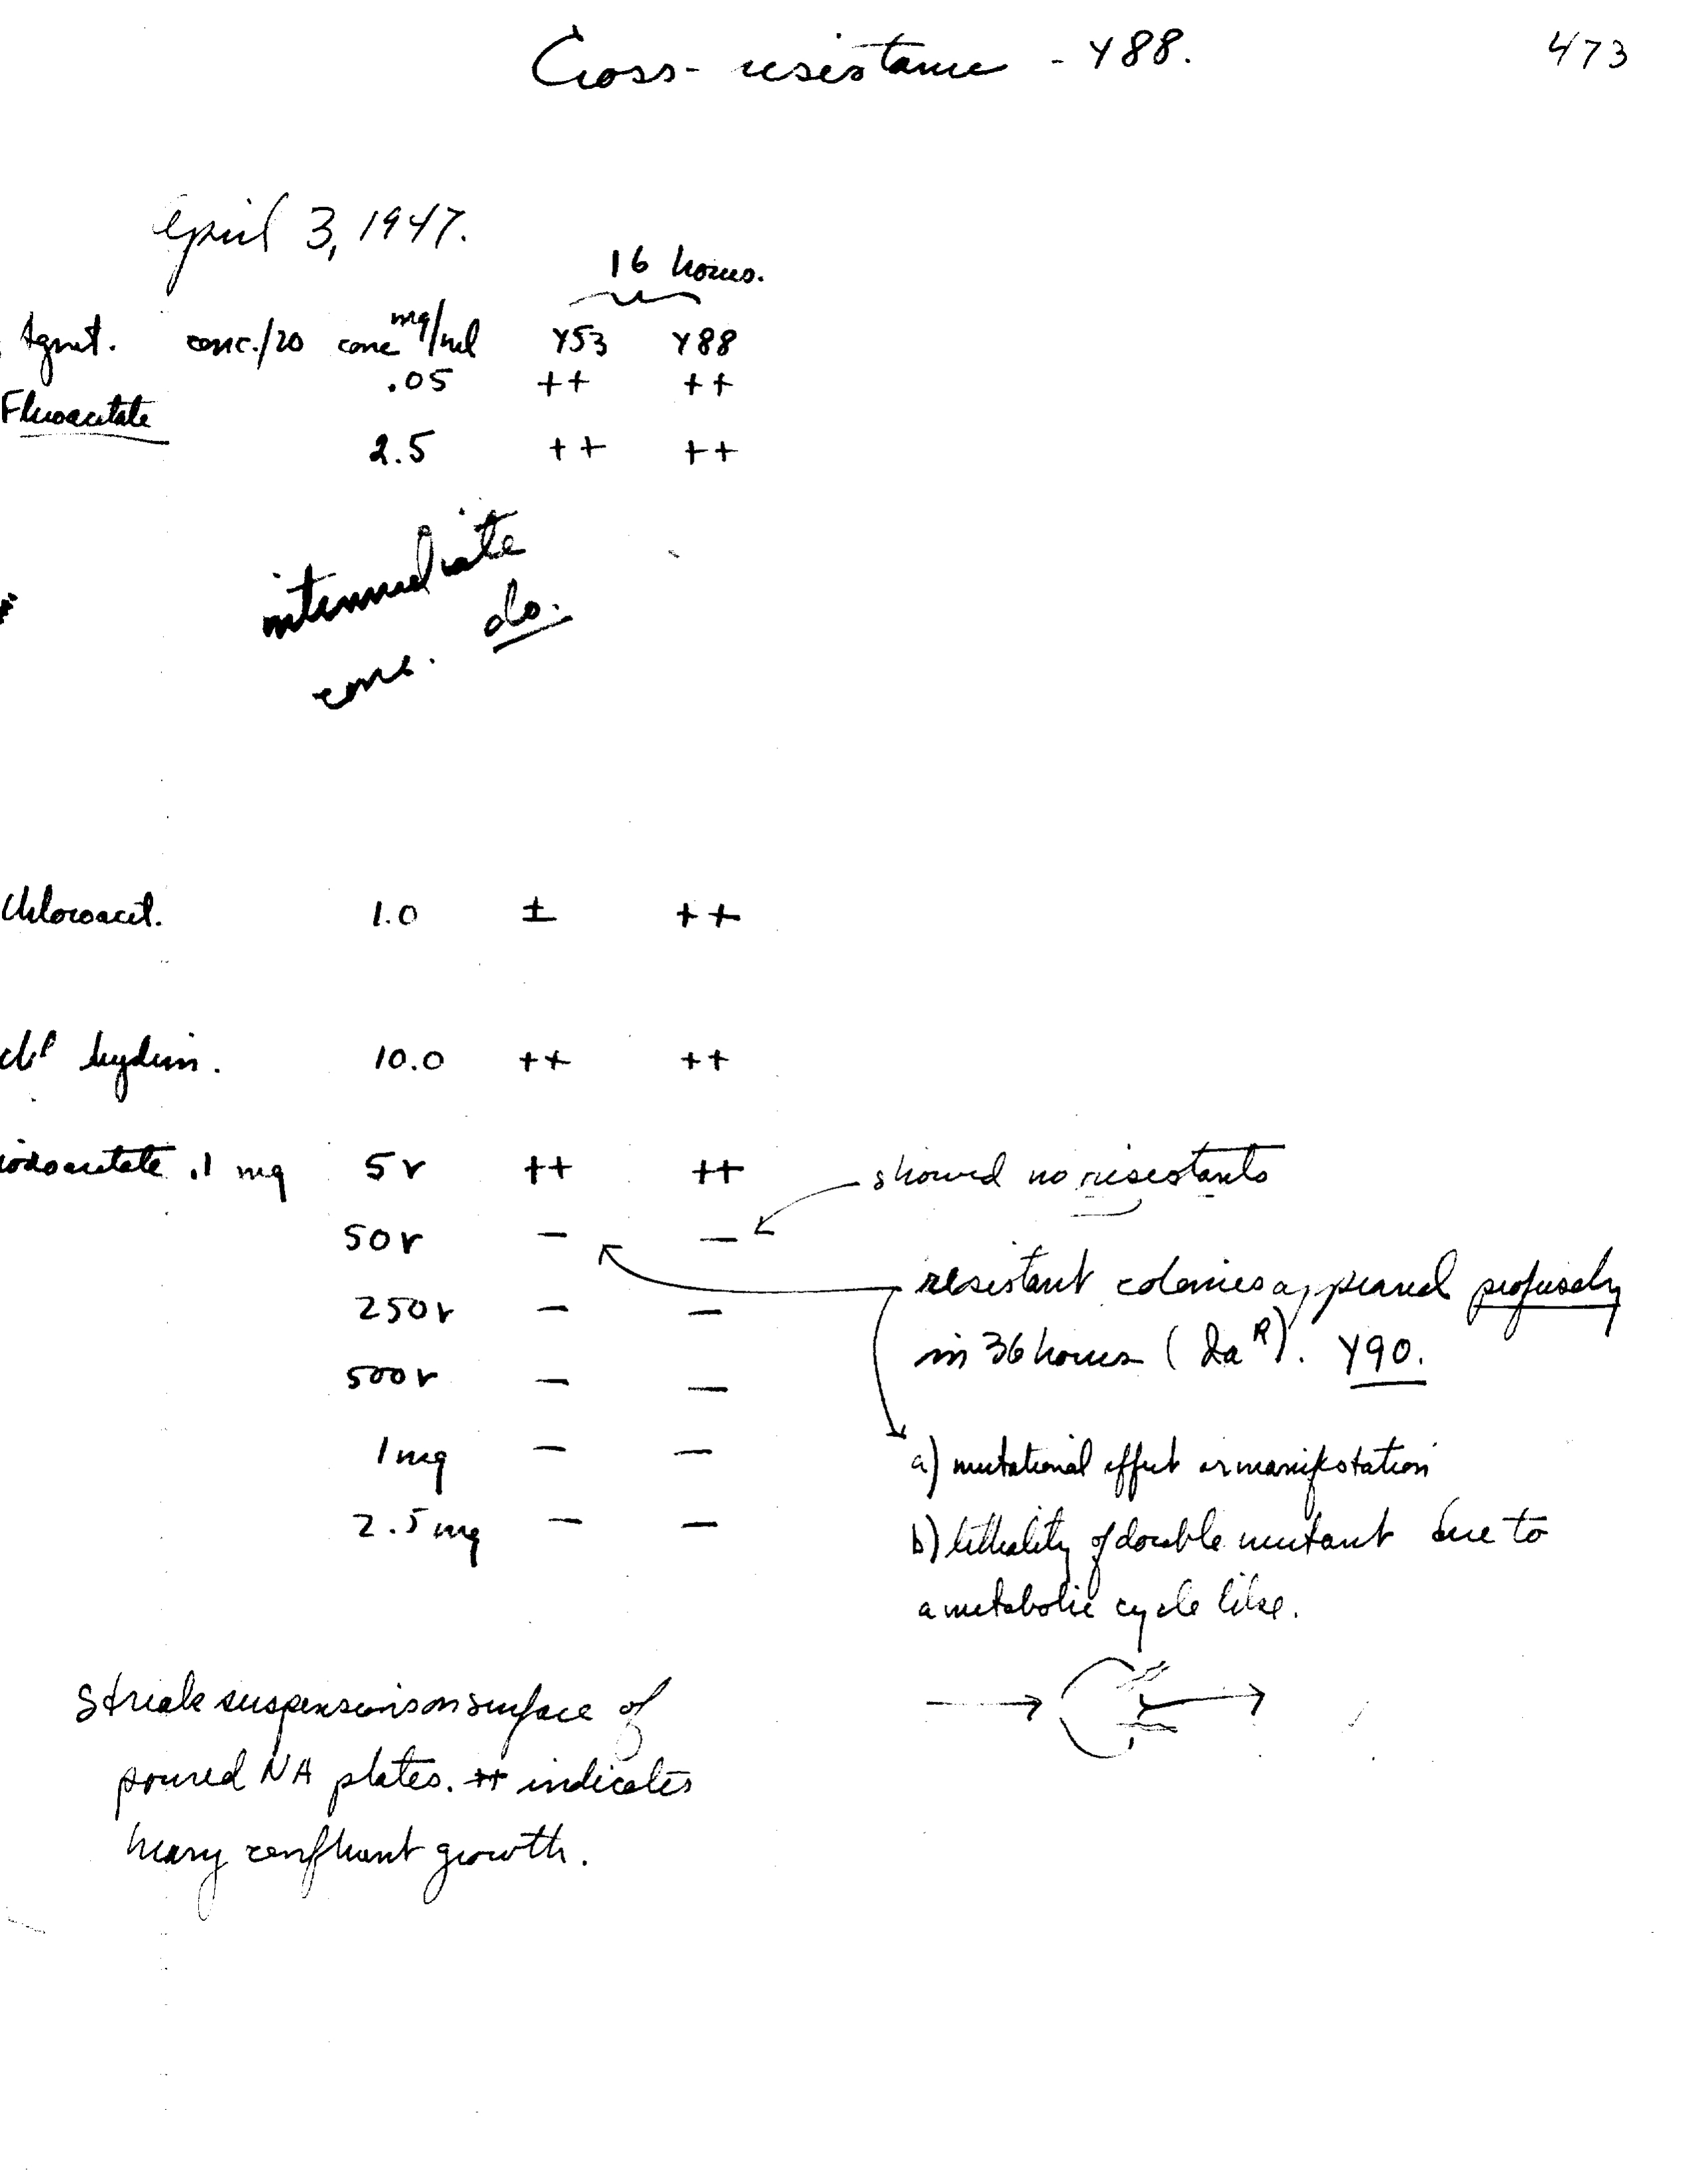 Cross-resistance - Y88. 473
April 3, 1947.
16 hours.
Agent. conc./20 conc mg/ml Y53 Y88
.05 ++ ++
Fluoacetate
2.5 ++ ++
intermediate
conc. do.
Chloroacet. 1.0 ± ++
hydrin. 10.0 ++ ++
iodoacetate .1 mg 5γ ++ ++ showed no resistants
50γ — —
resistant colonies appeared profusely
250γ — —
in 36 hours (Ia^R). Y90.
500γ — —
1mg — — a) mutational effect or manifestation
2.5 mg — — b) lethality of double mutant due to
a metabolic cycle like.
Streak suspensions on surface of
poured NA plates. ++ indicates
heavy confluent growth.